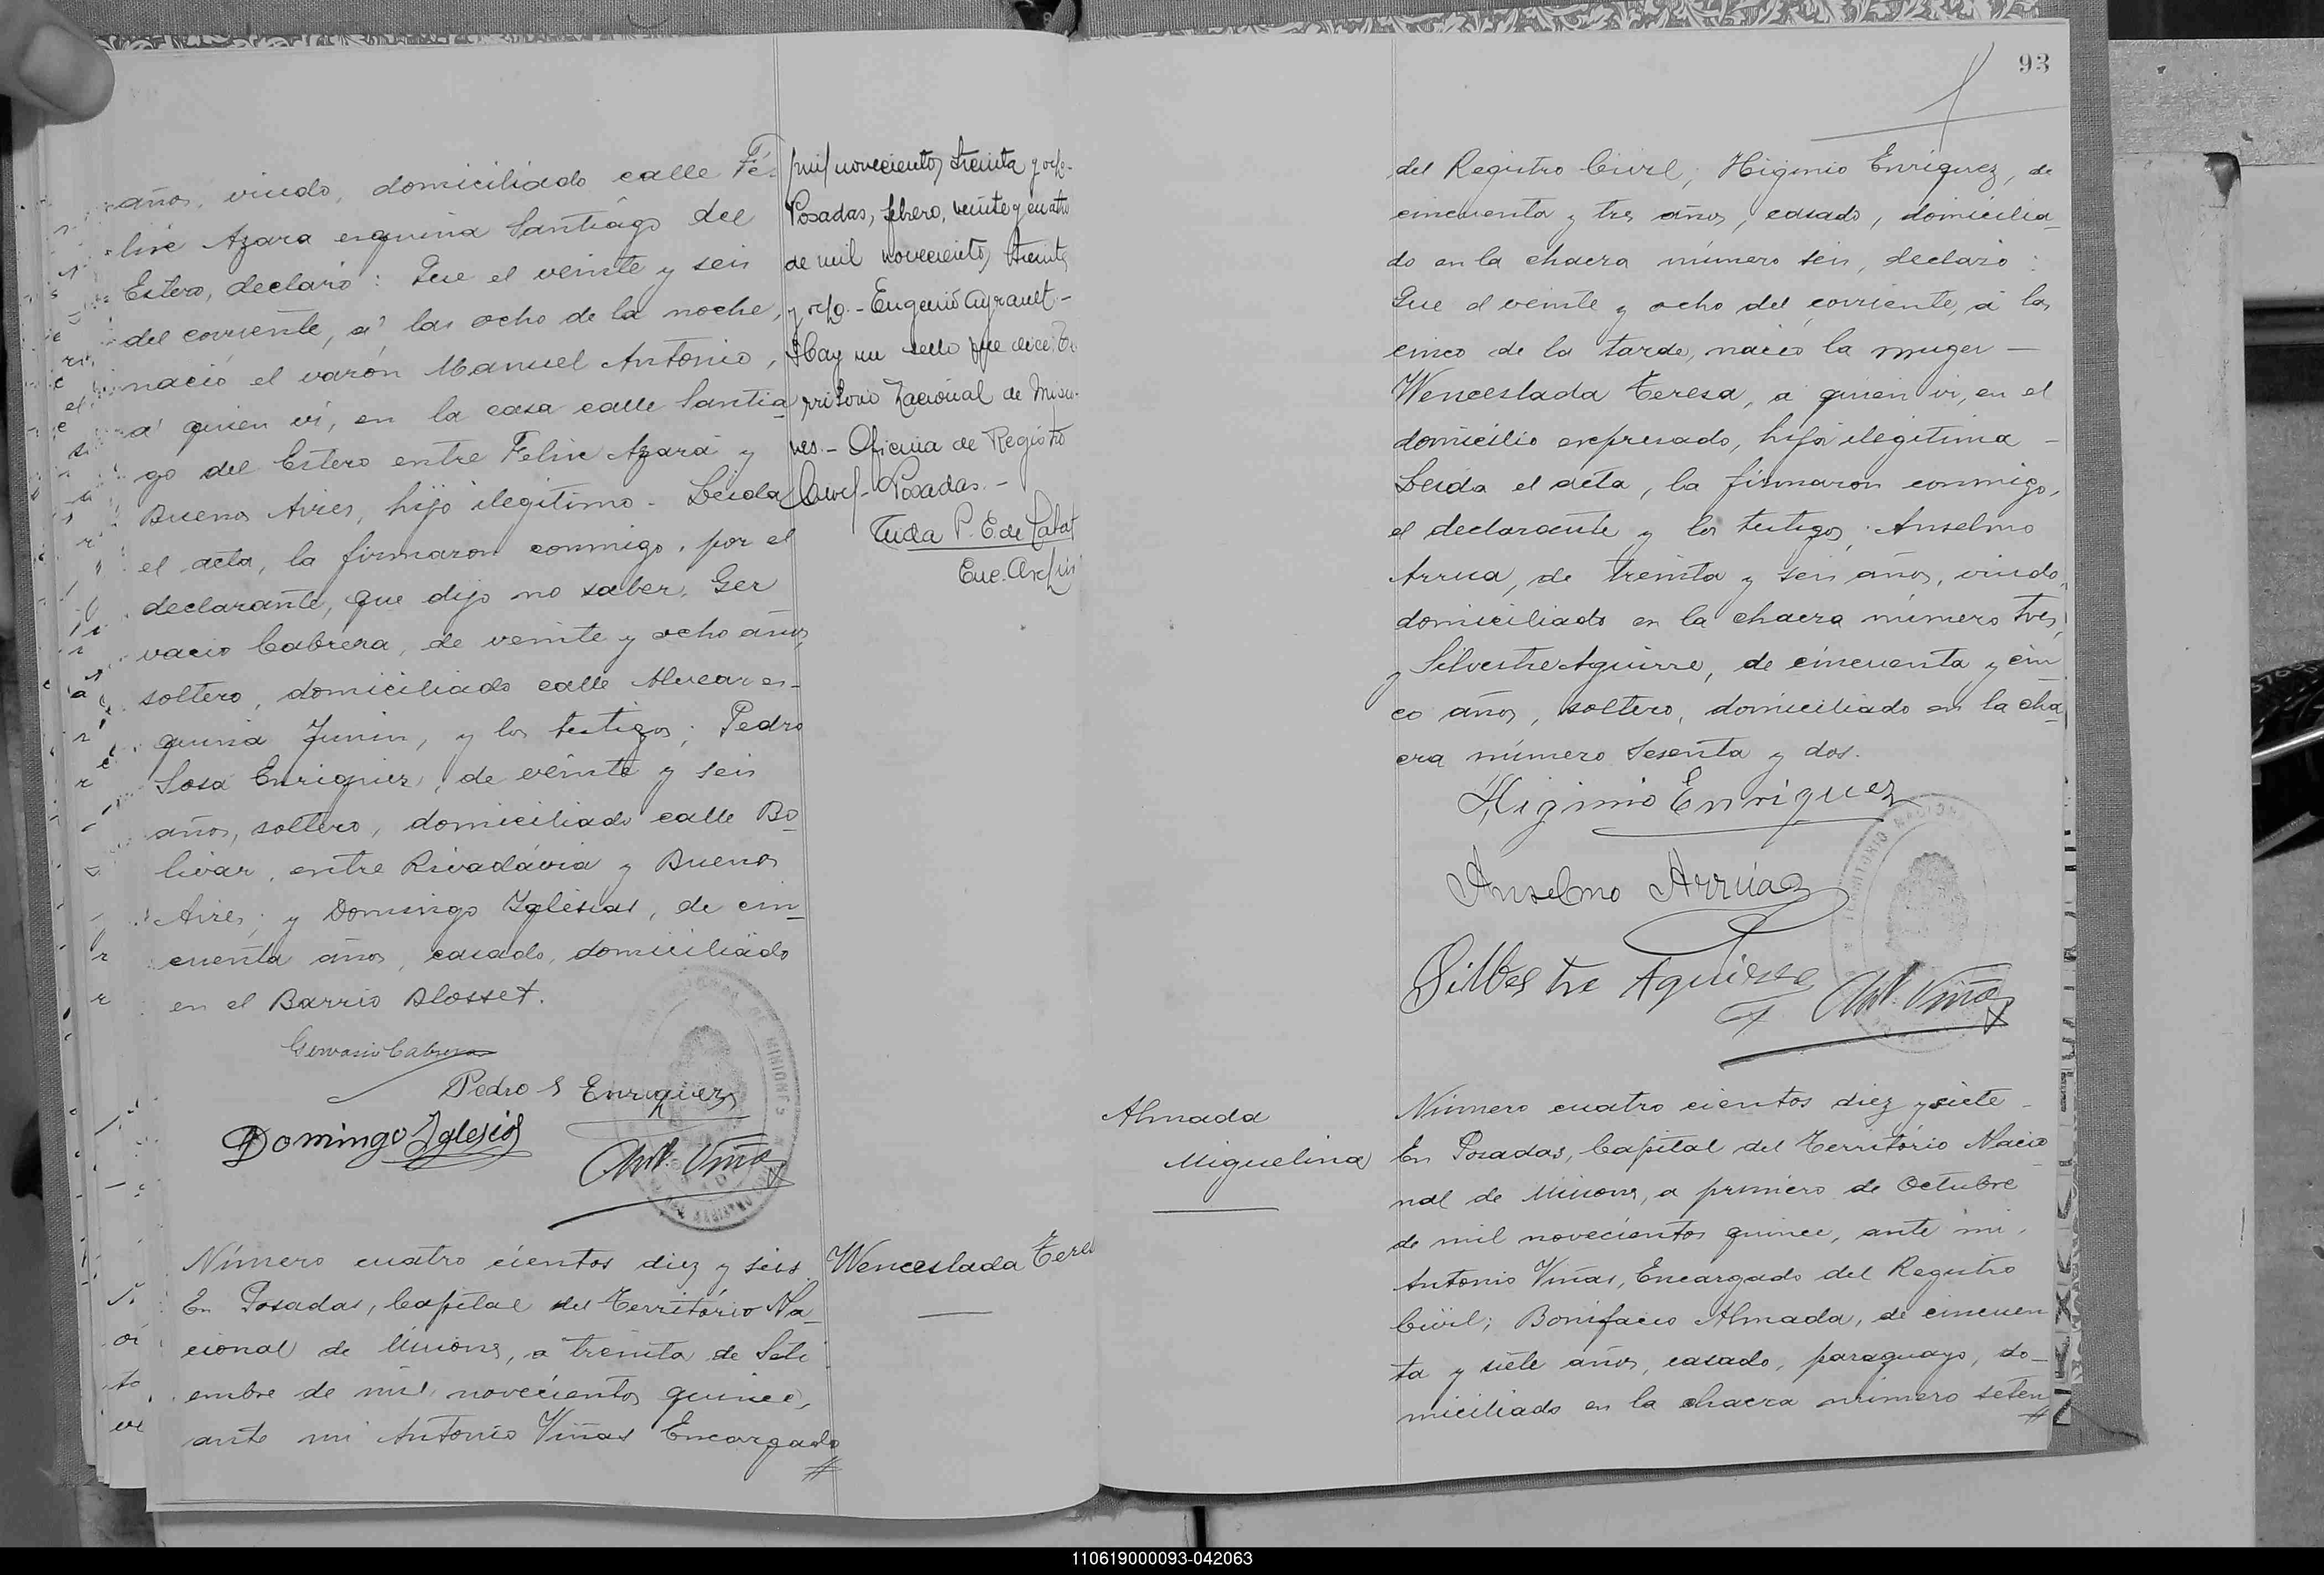 años, viudo, domiciliado calle Fé-
lix Azara esquina Santiago del
Estero, declaró: Que el veinte y seis
del corriente, á las ocho de la noche,
nació el varón Manuel Antonio,
á quien ví, en la casa calle Santia
go del Estero entre Felix Azara y
Buenos Aires, hijo ilegítimo - Leida
el acta, la firmaron conmigo, por el
declarante, que dijo no saber, Ger
vacio Cabrera, de veinte y ocho años,
soltero, domiciliado calle Alvear es-
quina Junin, y los testigos; Pedro
Sosa Enriquez, de veinte y seis
años, soltero, domiciliado calle Bo
livar, entre Rivadávia y Buenos
Aires; y Domingo Yglesias, de cin
cuenta años, casado, domiciliado
en el Barrio Blosset.
Gervasio Cabrera
Pedro S Enriquez
Domingo Yglesias
Ant. Viñas
Número cuatro cientos diez y seis
En Posadas, Capital del Território Na
cional de Misiones, a treinta de Seti
embre de mil novecientos quince,
ante mi Antonio Viñas Encargado
mil novecientos treinta y ocho-
Posadas, febrero, veinte y cuatro
de mil novecientos treinta
y ocho.- Eugenio Ayrault-
Hay un sello que dice: Te
rritorio Nacional de Misio-
nes.- Oficina de Registro
Civil- Posadas.-
P. E. de
Wenceslada Tere
93
del Registro Civil; Higinio Enriquez, de
cincuenta y tres años, casado, domicilia
do en la chacra número seis, declaró:
Que el veinte y ocho del corriente, á las
cinco de la tarde, nació la muger -
Wenceslada Teresa, a quien vi, en el
domicilio expresado, hija ilegítima -
Leida el acta, la firmaron conmigo,
el declarante y los testigos; Anselmo
Arrua, de treinta y seis años, viudo,
domiciliado en la chacra número tres,
y Silvestre Aguirre, de cincuenta y cin
co años, soltero, domiciliado en la cha
cra número sesenta y dos.
Higinio Enriquez
Anselmo Arrúa
Silbestre Aguirre
Ant. Viñas
Almada
Miguelina
Número cuatro cientos diez y siete -
En Posadas, Capital del Território Nacio
nal de Misiones, a primero de Octubre
de mil novecientos quince, ante mi,
Antonio Viñas, Encargado del Registro
Civil; Bonifacio Almada, de cincuen
ta y siete años, casado, paraguayo, do-
miciliado en la chacra número seten
110619000093-042063